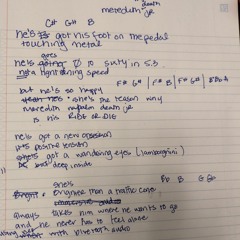 death
meredith jr
C# G# B
he's got his foot on the pedal
touching metal
goes
he's 0 to sixty in 5.3
not a lightening speed
F# G# | C# B | F# G# |
but he's so happy
she's the reason why
meredith death jr
is his RIDE OR DIE
he's got a new obsession
it's positive
got a wandering eyes (lamborghini)
but deep inside
she's B G
brighter than a traffic cone
always takes him where he wants to go
and he never has to feel alone
with bluetooth audio